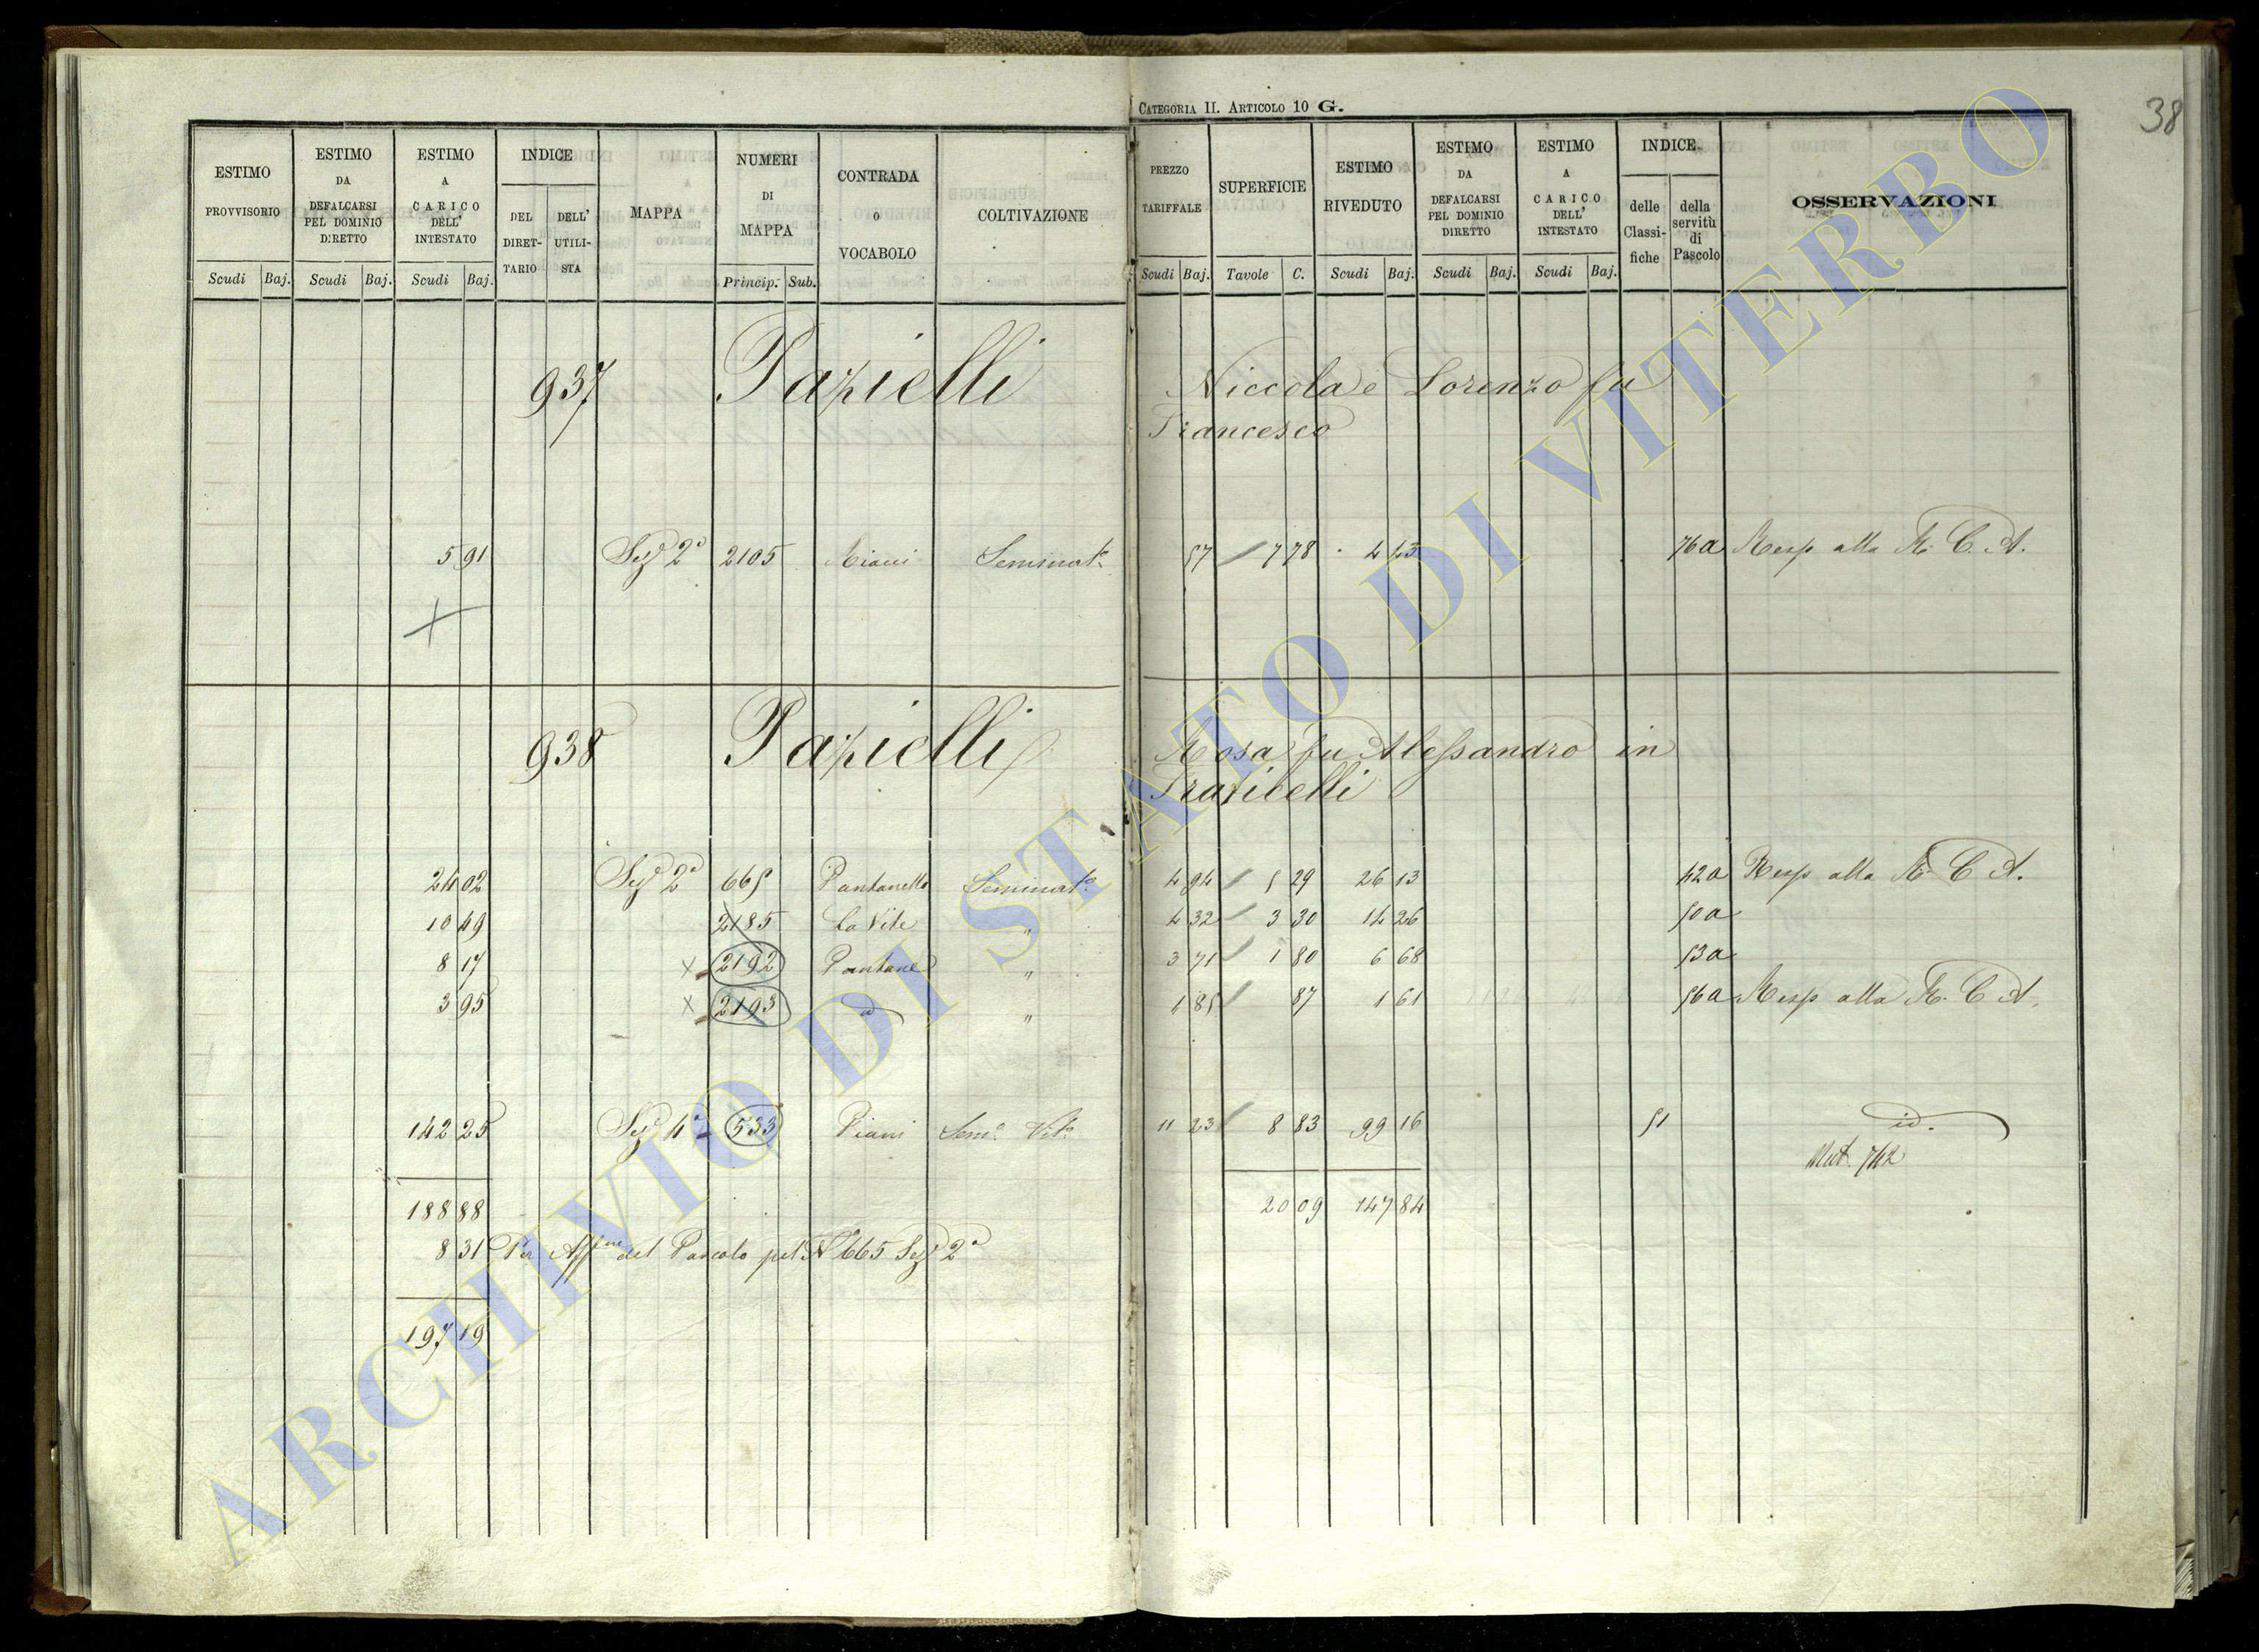 CATEGORIA II. ARTICOLO 10 G.
38
ESTIMO PROVVISORIO Scudi Baj.
ESTIMO DA DEFALCARSI PEL DOMINIO DIRETTO Scudi Baj.
ESTIMO A CARICO DELL' INTESTATO Scudi Baj.
INDICE DEL DIRETTARIO DELL' UTILISTA
MAPPA
NUMERI DI MAPPA Princip. Sub.
CONTRADA O VOCABOLO
COLTIVAZIONE
PREZZO TARIFFALE Scudi Baj.
SUPERFICIE Tavole C.
ESTIMO RIVEDUTO Scudi Baj.
ESTIMO DA DEFALCARSI PEL DOMINIO DIRETTO Scudi Baj.
ESTIMO A CARICO DELL' INTESTATO Scudi Baj.
INDICE delle Classifiche della servitù di Pascolo
OSSERVAZIONI
937 Pazielli Niccola e Lorenzo fu
Francesco
5 91 Sez 2a 2105 Seminato 57 7 78 4 43 76a Resp alla R. C. A.
938 Pazielli Rosa fu Alessandro in
24 02 Sez 2a 665 Pantanello Seminato 4 94 5 29 26 13 42a Resp alla R. C. A.
10 49 2185 La Vite " 4 32 3 30 14 26 50a
8 17 x 2192 Pantane " 3 71 1 80 6 68 53a
3 95 x 2193 id " 1 85 87 1 61 56a Resp alla R. C. A.
142 25 Sez 4a 533 Piani Semo Vito 11 23 8 83 99 16 51 id.
Mut. 742
188 88 20 09 147 84
8 31 Per Affne del Pascolo pel N 665 Sez 2a
197 19
ARCHIVIO DI STATO DI VITERBO